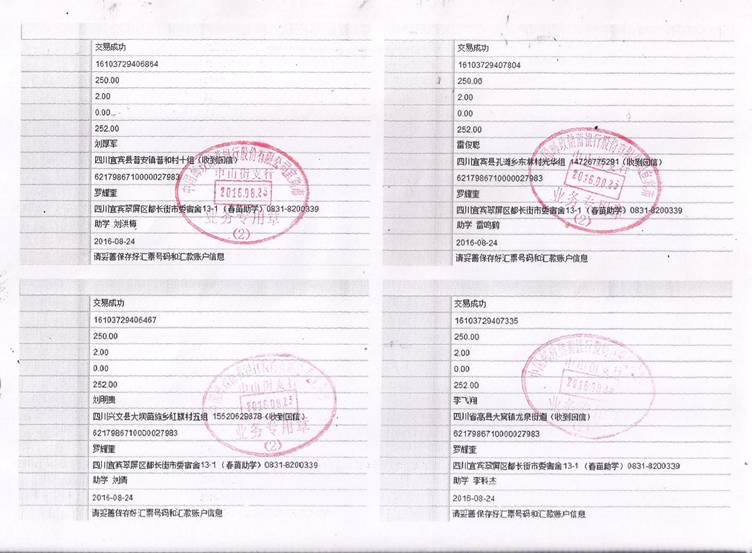 交易成功
16103729406864
250.00
2.00
0.00
252.00
刘厚军
四川宜宾县普安镇普和村十组(收到回信)
6217986710000027983
罗耀奎
四川宜宾翠屏区都长街市委宿舍13-1(春苗助学)0831-8200339
助学 刘洪梅
2016-08-24
请妥善保存好汇票号码和汇款账户信息
中山街支行
2016.08.25
业务专用章
(2)
交易成功
16103729407804
250.00
2.00
0.00
252.00
雷俊聪
四川宜宾县孔滩乡东林村光华组 14726775291(收到回信)
6217986710000027983
罗耀奎
四川宜宾翠屏区都长街市委宿舍13-1(春苗助学)0831-8200339
助学 雷鸣鹤
2016-08-24
请妥善保存好汇票号码和汇款账户信息
中山街支行
2016.08.25
业务专用章
(2)
交易成功
16103729406467
250.00
2.00
0.00
252.00
刘明贵
四川兴文县大坝苗族乡红旗村五组 15520629878(收到回信)
6217986710000027983
罗耀奎
四川宜宾翠屏区都长街市委宿舍13-1(春苗助学)0831-8200339
助学 刘倩
2016-08-24
请妥善保存好汇票号码和汇款账户信息
中山街支行
2016.08.25
业务专用章
(2)
交易成功
16103729407335
250.00
2.00
0.00
252.00
李飞翔
四川省高县大窝镇龙泉街道(收到回信)
6217986710000027983
罗耀奎
四川宜宾翠屏区都长街市委宿舍13-1(春苗助学)0831-8200339
助学 李科杰
2016-08-24
请妥善保存好汇票号码和汇款账户信息
中山街支行